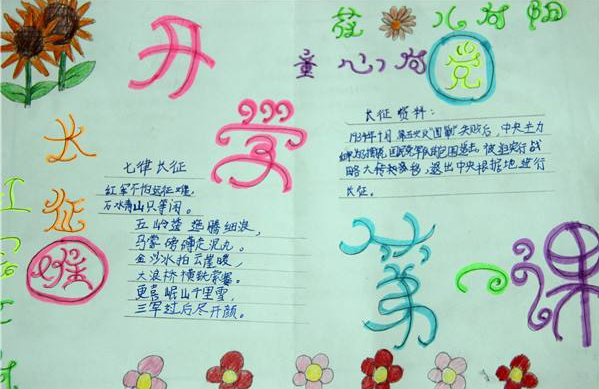 开
学
第
一
课
花儿向阳
童心向党
长
征
七律长征
红军不怕远征难，
水青山只等闲。
五岭逶迤腾细浪，
蒙磅礴走泥丸。
金沙水拍云崖暖，
大浪桥横铁索寒。
更喜岷山千里雪，
三军过后尽开颜。
长征资料：
1934年10月第五次反"围剿"失败后，中央主力
红军为摆脱国民党军队的包围追击，被迫实行战
略大转移，退出中央根据地进行
长征。